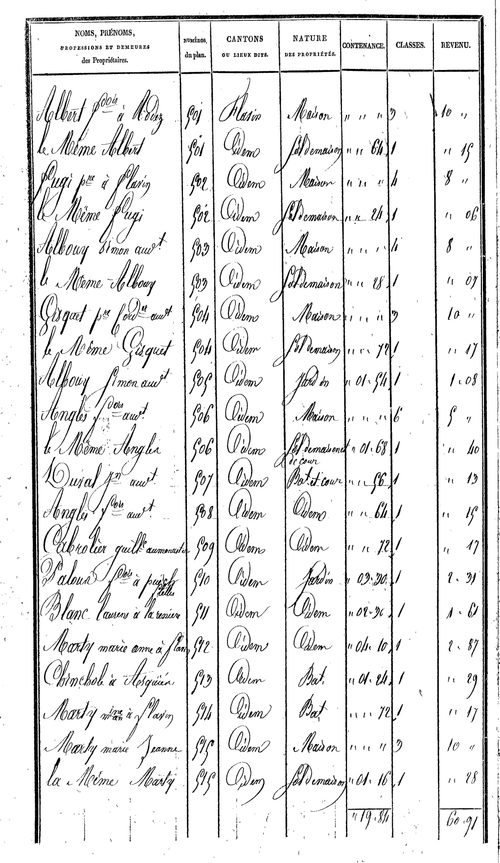 NOMS, PRÉNOMS, NUMÉROS CANTONS NATURE
PROFESSIONS ET DEMEURES CONTENANCE. CLASSES. REVENU.
des Propriétaires. du plan. OU LIEUX DITS. DES PROPRIÉTÉS.
Albert fois à Rodez 501 Flavin Maison " " " 3 10 "
le Même Albert 501 Idem Sol de maison " " 64 1 " 15
Fugi pre à Flavin 502 Idem Maison " " " 4 8 "
le Même Fugi 502 Idem Sol de maison " " 24 1 " 06
Albouy Simon audt 503 Idem Maison " " " 4 8 "
le Même Albouy 503 Idem Sol de maison " " 28 1 " 07
Gisquet pre audt 504 Idem Maison " " " 3 10 "
le Même Gisquet 504 Idem Sol de maison " " 72 1 " 17
Albouy Simon audt 505 Idem Jardin " 01. 54 1 1. 08
Anglès fois audt 506 Idem Maison " " " 6 5 "
le Même Anglès 506 Idem Sol de maison et de cour " 01. 68 1 " 40
Duval audt 507 Idem Bat. et cour " " 56 1 " 13
Anglès fois audt 508 Idem Idem " " 64 1 " 15
Cabrolier guille au monastère 509 Idem Idem " " 72 1 " 17
Palous fois à 510 Idem Jardin " 03. 30 1 2. 31
Blanc laurens à la resiere 511 Idem Idem " 02. 30 1 1. 61
Marty marie anne à Flavin 512 Idem Idem " 04. 10 1 2. 87
Chinchole à 513 Idem Bat. " 01. 24 1 " 29
Marty à Flavin 514 Idem Bat " " 72 1 " 17
Marty marie Jeanne 515 Idem Maison " " " 3 10 "
la Même Marty 515 Idem Sol de maison " 01. 16 1 " 28
" 19. 84 60. 91